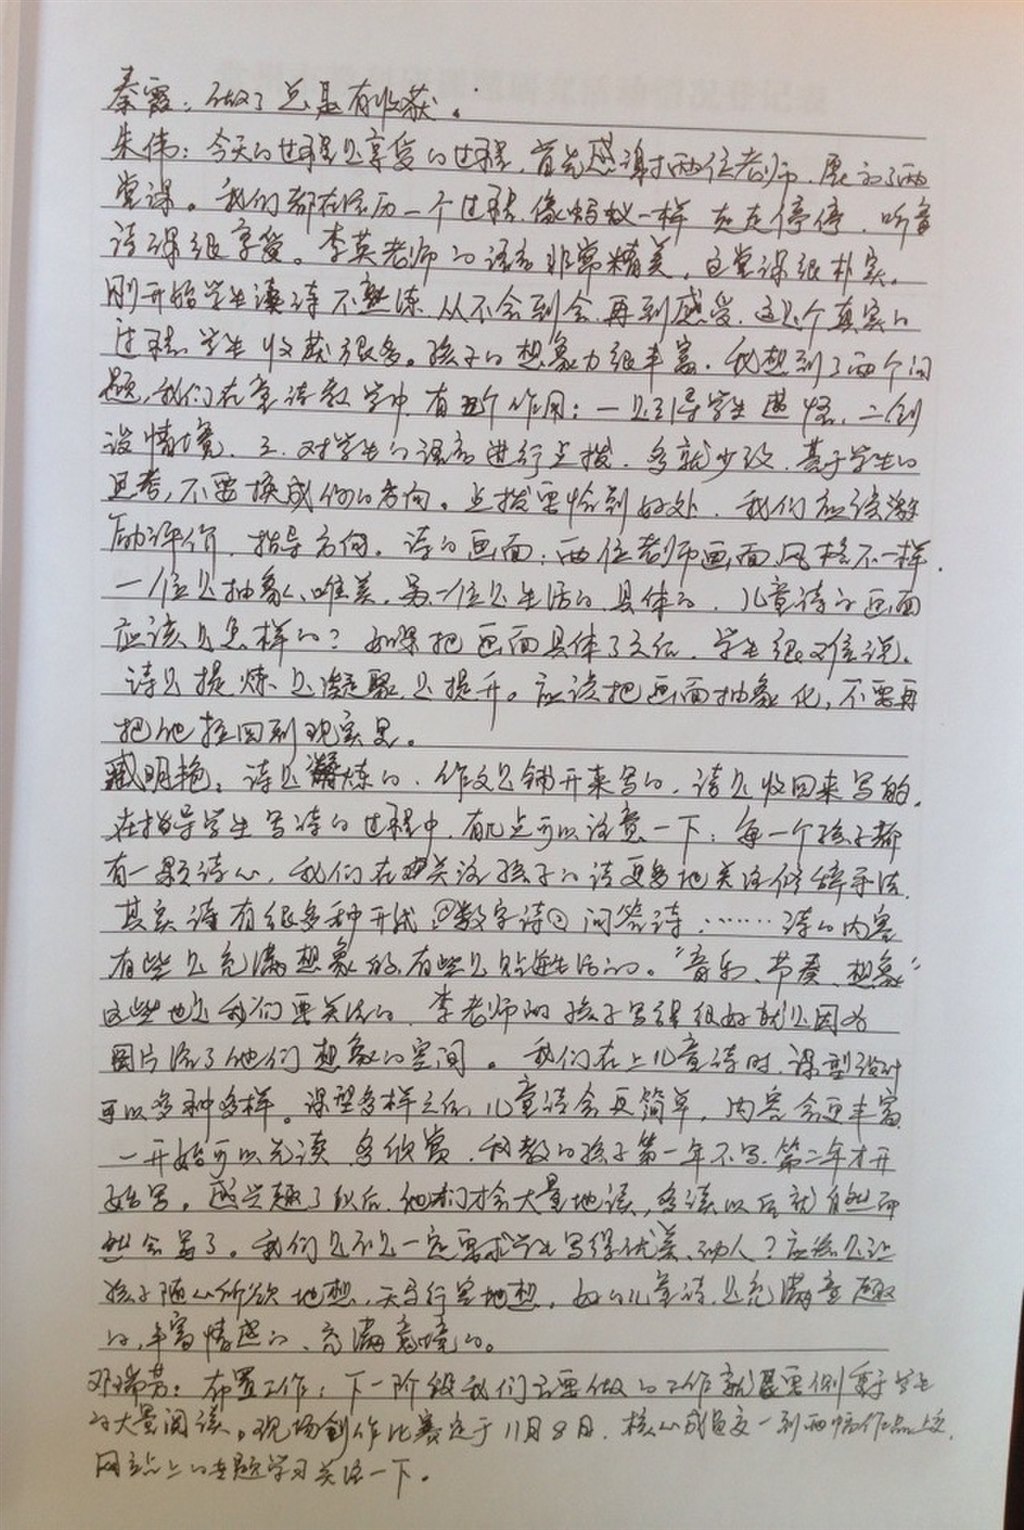 秦霞：做了总是有收获。
朱伟：今天的过程是享受的过程，首先感谢两位老师，展示了两
堂课。我们都在经历一个过程，像蚂蚁一样 走走停停，听童
诗课很享受。李英老师的语言非常精美，这堂课很朴实，
刚开始学生读诗不熟练，从不会到会，再到感受，这是个真实的
过程，学生收获很多。孩子的想象力很丰富。我想到了两个问
题，我们在童诗教学中，有三个作用：一是引导学生 悟，二创
设情境，三、对学生的语言进行点拨，多就少改，基于学生的
思考，不要换成你的方向。点拨要恰到好处，我们应该激
励评价，指导方向。诗的画面：两位老师画面风格不一样，
一位是抽象、唯美，另一位是生活的、具体的，儿童诗的画面
应该是怎样的？如果把画面具体了之后，学生很难说，
诗是提炼，是凝聚，是提升。应该把画面抽象化，不需要再
把他拉回到现实里。
臧明艳：诗是凝炼的，作文是铺开来写的，诗是收回来写的，
在指导学生写诗的过程中，有几点可以注意一下：每一个孩子都
有一颗诗心，我们在关注孩子的诗更多地关注修辞手法，
其实诗有很多种形式 ①数字诗② 问答诗：……诗的内容
有些是充满想象的，有些是贴近生活的。“音乐、节奏、想象”
这些也是我们要关注的，李老师的孩子写得很好就是因为
图片给了他们想象的空间。我们在上儿童诗时，课型设计
可以多种多样。课型多样之后，儿童诗会更简单，内容会更丰富
一开始可以先读，多欣赏，我教的孩子第一年不写，第二年才开
始写。感兴趣了以后，他们才会大量地读，多读以后就自然而
然会写了。我们是不是一定要求学生写得优美、动人？应该是让
孩子随心所欲地想，天马行空地想，好的儿童诗是充满童趣
的、丰富情感的、充满意境的。
邓瑞芳：布置工作：下一阶段我们主要做的工作就是要侧重于学生
的大量阅读。现场创作比赛定于11月8日，核心成员交一到两幅作品上交，
网站上的专题学习关注一下。